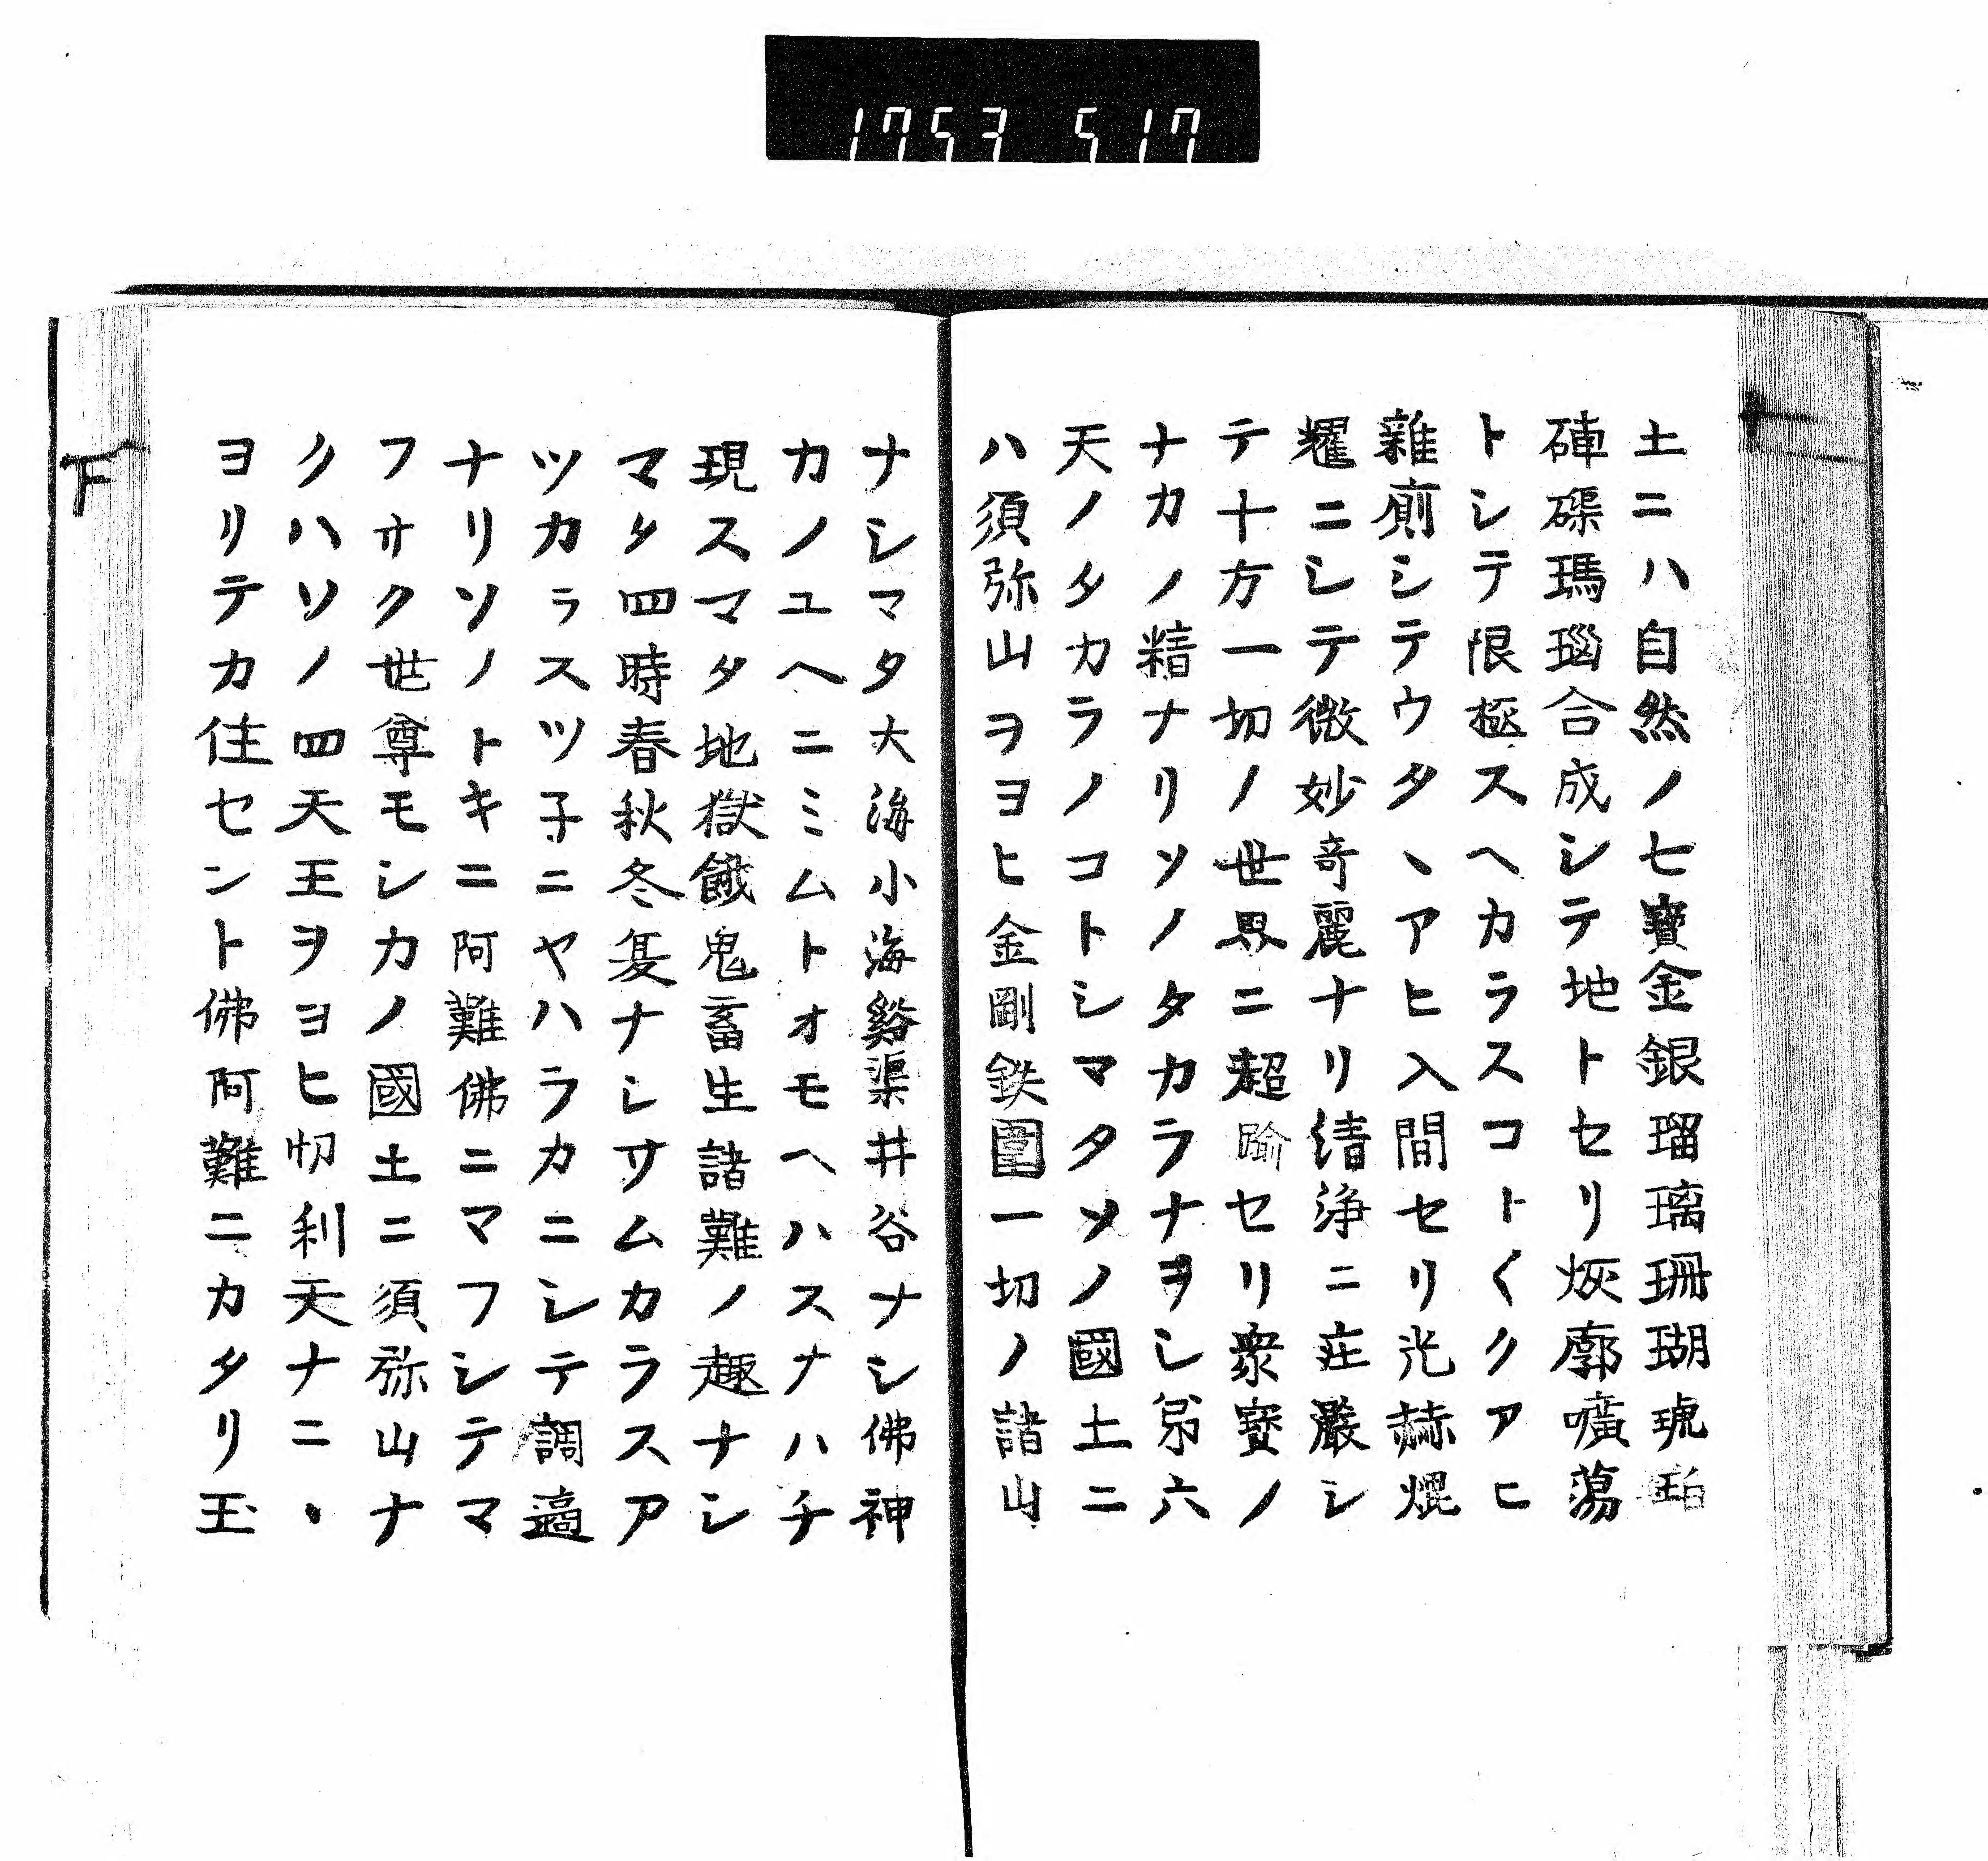 1753 517
土ニハ自然ノ七寶金銀瑠璃珊瑚琥珀
硨磲瑪瑙合成シテ地トセリ恢廓曠蕩
トシテ限極スヘカラスコト〱クアヒ
雜廁シテウタヽアヒ入間セリ光赫焜
耀ニシテ微妙奇麗ナリ清浄ニ庄嚴シ
テ十方一切ノ世界ニ超踰セリ衆寳ノ
ナカノ精ナリソノタカラナヲシ第六
天ノタカラノコトシマタソノ國土ニ
ハ須弥山ヲヨヒ金剛鉄圍一切ノ諸山
ナシマタ大海小海谿渠井谷ナシ佛神
カノユヘニミムトオモヘハスナハチ
現スマタ地獄餓鬼畜生諸難ノ趣ナシ
マタ四時春秋冬夏ナシサムカラスア
ツカラスツ子ニヤハラカニシテ調適
ナリソノトキニ阿難佛ニマフシテマ
フサク世尊モシカノ國土ニ須弥山ナ
クハソノ四天王ヲヨヒ忉利天ナニヽ
ヨリテカ住セント佛阿難ニカタリ玉
下